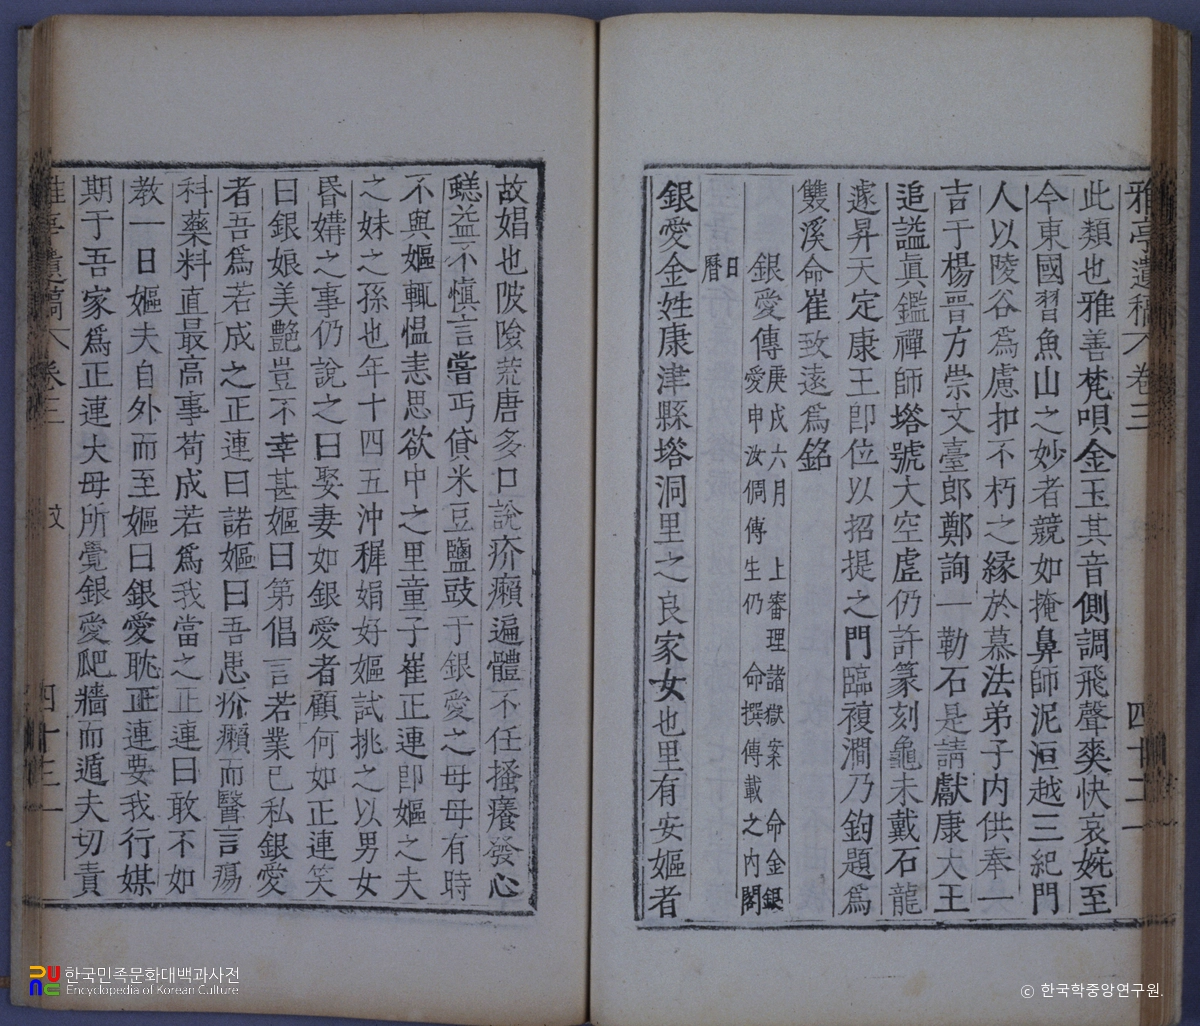 雅亭遺稿 卷三 四十二
此類也雅善梵唄金玉其音側調飛聲爽快哀婉至
今東國習魚山之妙者競如掩鼻師泥洹越三紀門
人以陵谷爲慮扣不朽之縁於慕法弟子内供奉一
吉于楊晋方崇文臺郎鄭詢一勒石是請獻康大王
追謚眞鑑禪師塔號大空虗仍許篆刻龜未戴石龍
遽昇天定康王卽位以招提之門臨複澗乃鈞題爲
雙溪命崔致遠爲銘
銀愛傳庚戌六月 上審理諸獄案 命金銀
愛申汝倜傅生仍 命撰傳載之内閣
日
曆
銀愛金姓康津縣塔洞里之良家女也里有安嫗者
故娼也陂險荒唐多口說疥癩遍體不任搔癢發心
益不愼言嘗丐貸米豆鹽豉于銀愛之母母有時
不與嫗輒愠恚思欲中之里童子崔正連卽嫗之夫
之妹之孫也年十四五沖穉娟好嫗試挑之以男女
昏媾之事仍說之曰娶妻如銀愛者顧何如正連笑
曰銀娘美艶豈不幸甚嫗曰第倡言若業已私銀愛
者吾爲若成之正連曰諾嫗曰吾患疥癩而醫言瘍
科藥料直最高事苟成若爲我當之正連曰敢不如
教一日嫗夫自外而至嫗曰銀愛耽正連要我行媒
期于吾家爲正連大母所覺銀愛爬牆而遁夫切責
雅亭遺稿 卷三 四十三
한국민족문화대백과사전
Encyclopedia of Korean Culture
© 한국학중앙연구원.